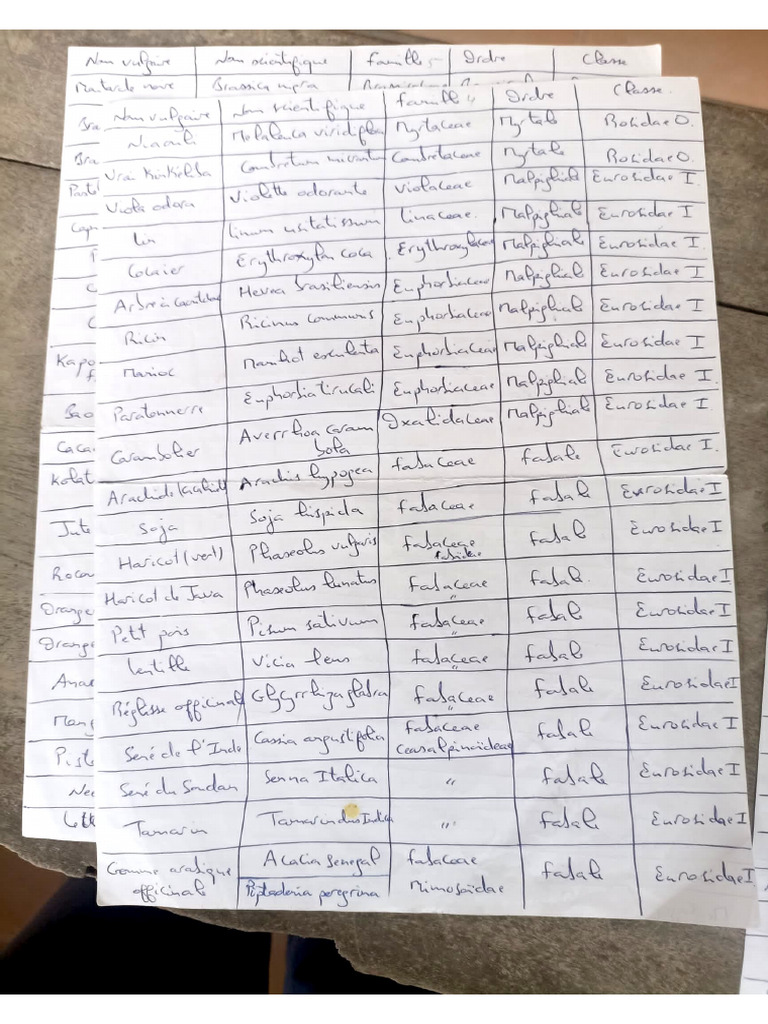 Nom vulgaire Nom scientifique famille Ordre Classe
Moutarde noire Brassica nigra
Nom vulgaire Nom scientifique famille Ordre Classe
Niaouli Melaleuca viridiflora Myrtaceae Myrtale Rosidae O.
Vrai Kinkéliba Combretum micrantum Combretaceae Myrtale Rosidae O.
Viola odora Violette odorante violaceae Malpighiale Eurosidae I
lin linum usitatissum linaceae. Malpighiale Eurosidae I
Cocaier Erythroxylon coca Erythroxylaceae Malpighiale Eurosidae I
Arbre à Caoutchouc Hevea brasiliensis Euphorbiaceae Malpighiale Eurosidae I
Ricin Ricinus communis Euphorbiaceae Malpighiale Eurosidae I
Manioc Manihot esculenta Euphorbiaceae Malpighiale Eurosidae I
Paratonnerre Euphorbia tirucali Euphorbiaceae Malpighiale Eurosidae I
Carambolier Averrhoa caram Oxalidaceae Malpighiale Eurosidae I
bola
Arachide (cacahuète) Arachis hypogea fabaceae fabale Eurosidae I.
Soja Soja hispida fabaceae fabale Eurosidae I
Haricot (vert) Phaseolus vulgaris fabaceae fabale Eurosidae I
Haricot de Java Phaseolus lunatus fabaceae fabale. Eurosidae I
"
Petit pois Pisum sativum fabaceae fabale Eurosidae I
"
lentille Vicia lens fabaceae fabale Eurosidae I
"
Réglisse officinale Glyzrrhiza glabra fabaceae fabale Eurosidae I
"
Séné de l'Inde Cassia angustifolia fabaceae fabale Eurosidae I
Ceasalpinoïdeae
Séné du Soudan Senna Italica " fabale Eurosidae I
Tamarin Tamarindus Indica " fabale Eurosidae I
Gomme arabique Acacia senegal fabaceae fabale Eurosidae I
officinale Piptadenia peregrina Mimosoïdae